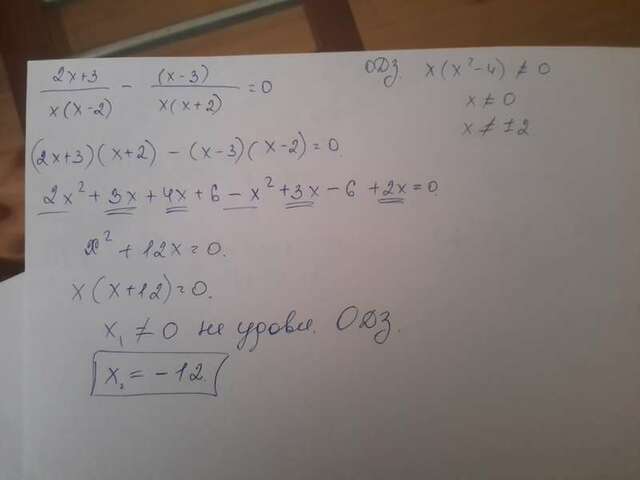 (2x+3)/(x(x-2)) - (x-3)/(x(x+2)) = 0
ОДЗ. x(x²-4) ≠ 0
x ≠ 0
x ≠ ±2
(2x+3)(x+2) - (x-3)(x-2) = 0.
2x² + 3x + 4x + 6 - x² + 3x - 6 + 2x = 0.
x² + 12x = 0.
x(x+12) = 0.
x₁ ≠ 0 не удовл. ОДЗ.
x₂ = -12.